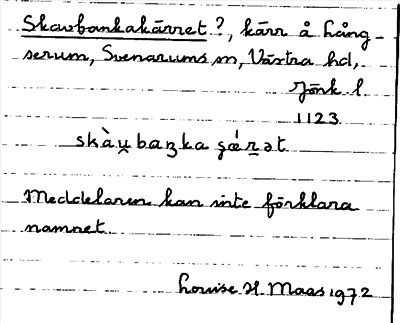 Skavbankakärret?, kärr å Lång-
serum, Svenarums sn, Västra hd,
Jönk. l.
1123
skàu̯baŋka
Meddelaren kan inte förklara
namnet
Louise H. Maas 1972